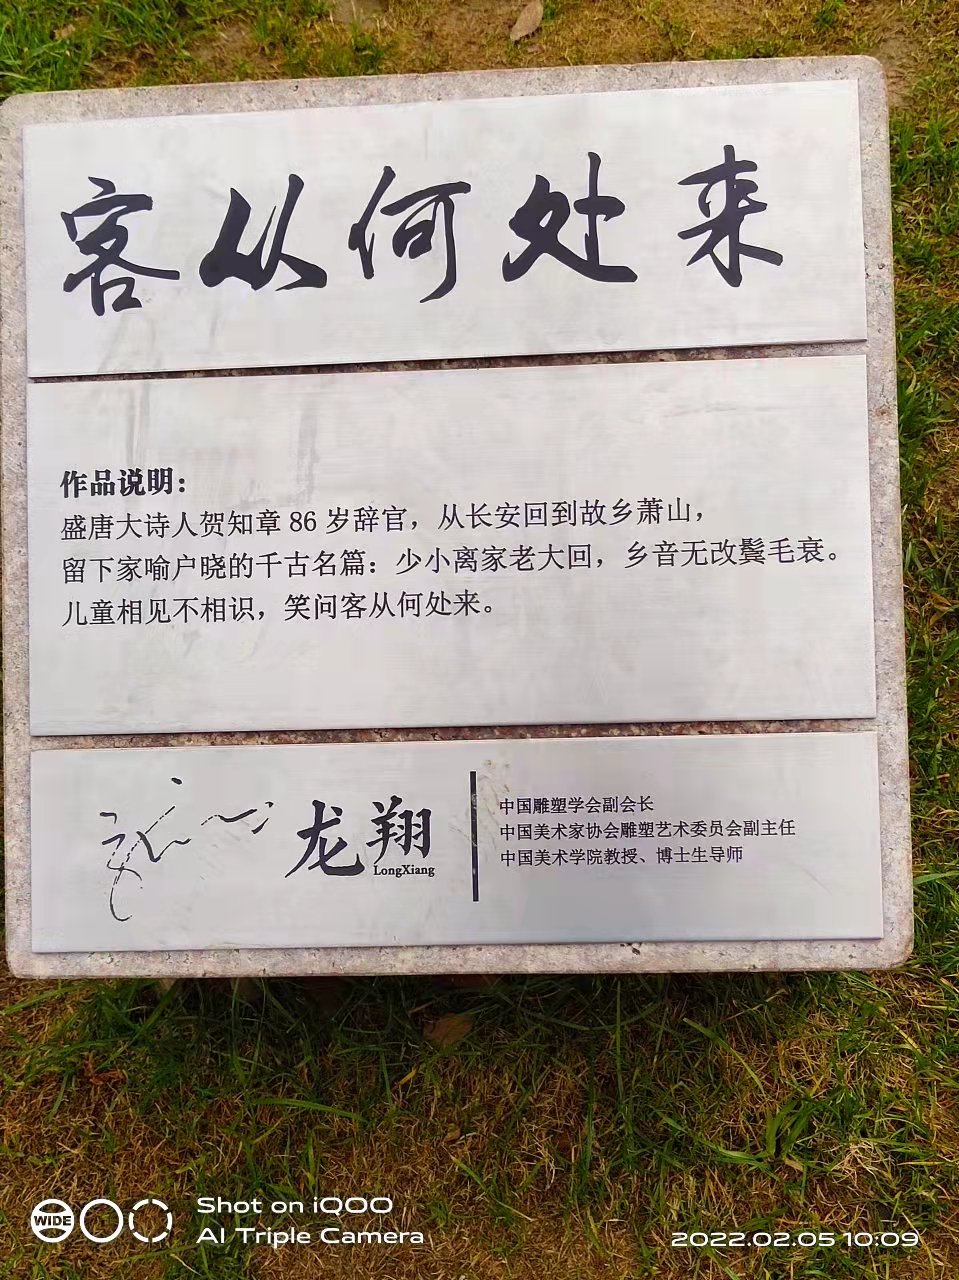 客从何处来
作品说明：
盛唐大诗人贺知章 86 岁辞官，从长安回到故乡萧山，
留下家喻户晓的千古名篇：少小离家老大回，乡音无改鬓毛衰。
儿童相见不相识，笑问客从何处来。
龙翔
LongXiang
中国雕塑学会副会长
中国美术家协会雕塑艺术委员会副主任
中国美术学院教授、博士生导师
WIDE
Shot on iQOO
AI Triple Camera
2022.02.05 10:09